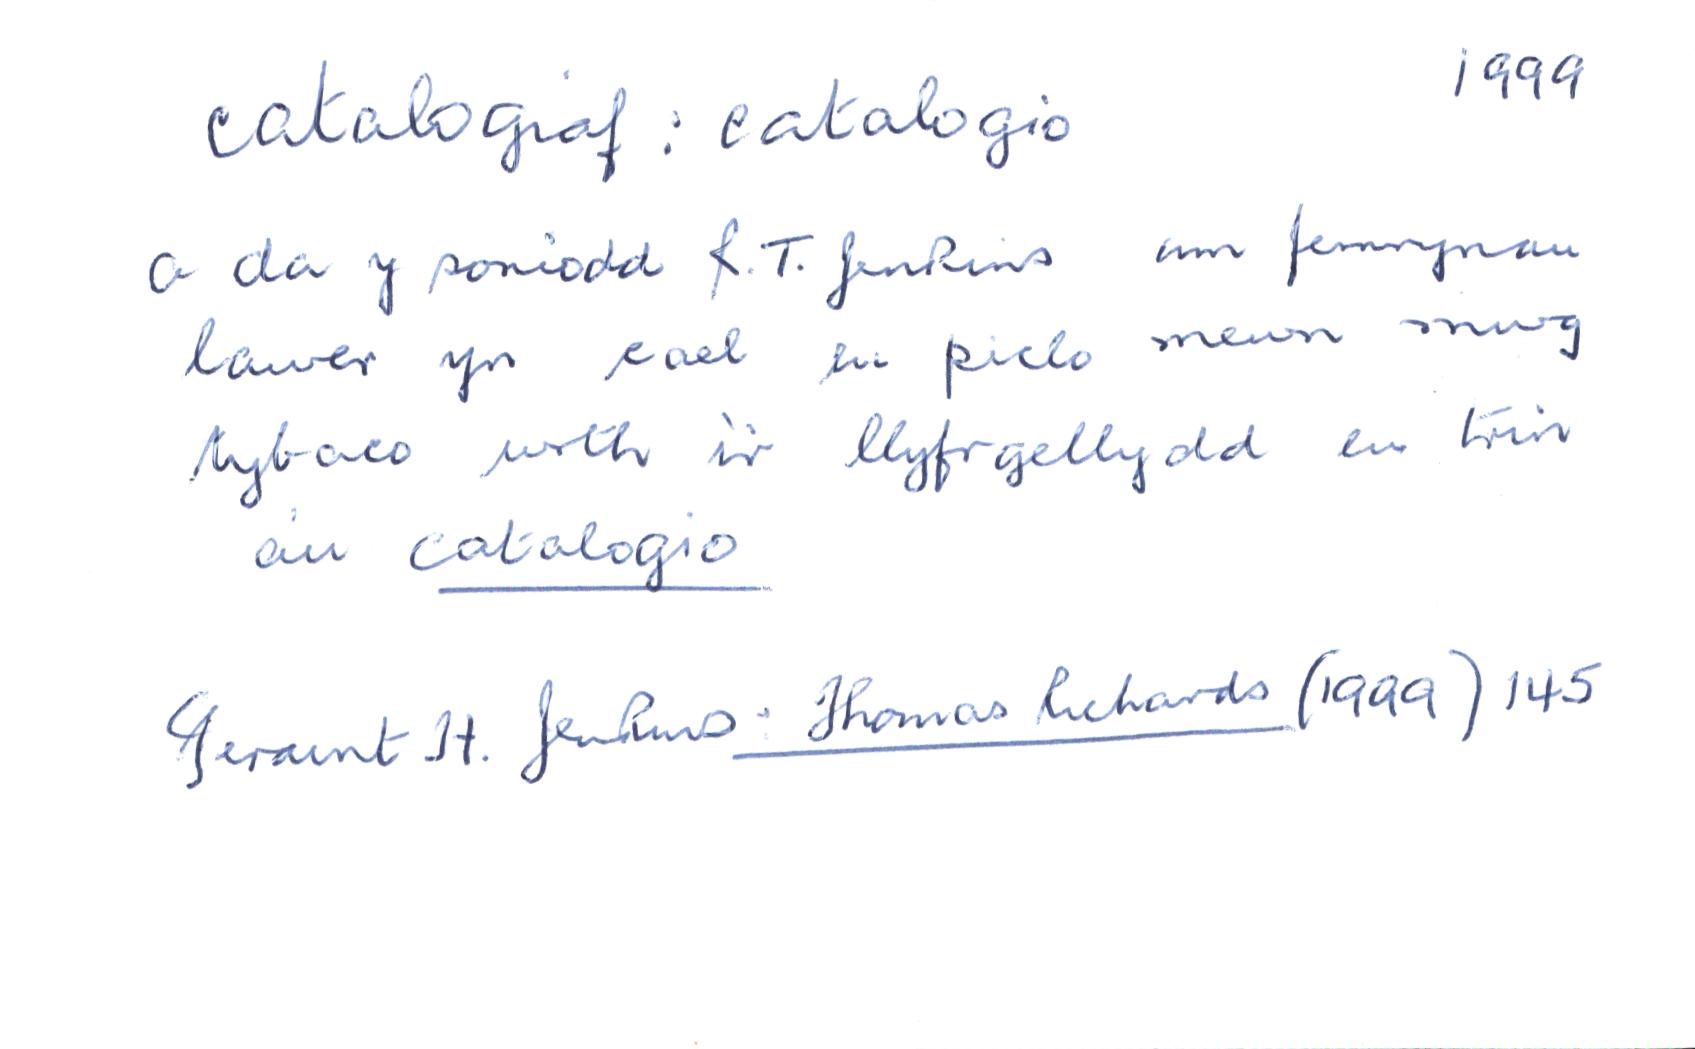 1999
catalogiaf : catalogio
a da y soniodd R.T. Jenkins am femrynau
lawer yn cael eu piclo mewn mwg
tybaco wrth i'r llyfrgellydd eu trin
a'u catalogio
Geraint H. Jenkins : Thomas Richards (1999) 145